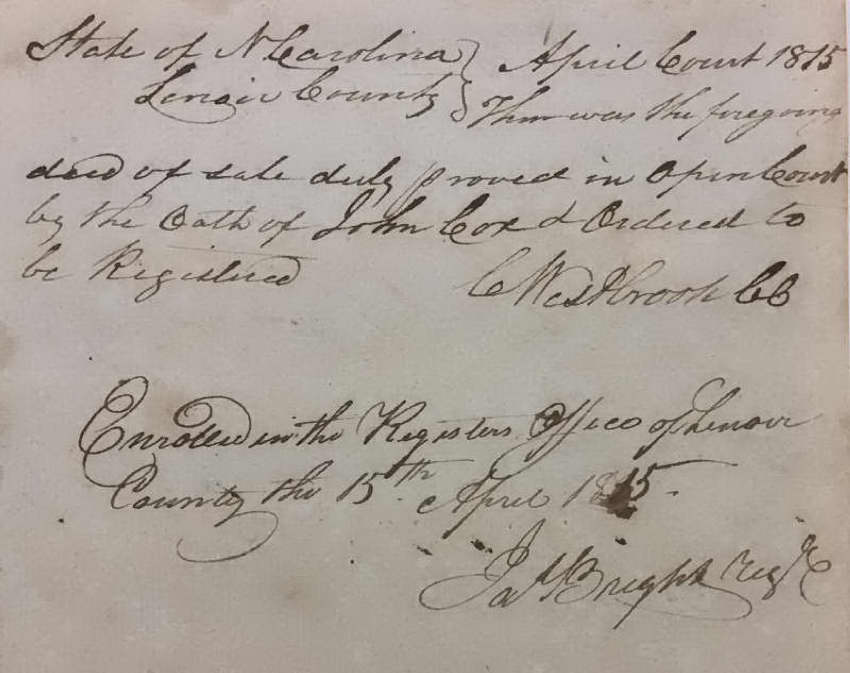 State of N Carolina } April Court 1815
Lenoir County } Then was the foregoing
deed of sale duly proved in Open Court
by the Oath of John Cox & Ordered to
be Registered C Westbrook CC
Enrolled in the Registers Office of Lenoir
County the 15th April 1815
Bright Reg